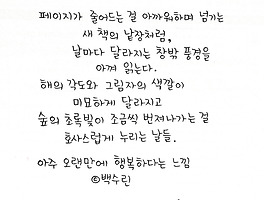 페이지가 줄어드는 걸 아까워하며 넘기는
새 책의 낱장처럼,
날마다 달라지는 창밖 풍경을
아껴 읽는다.
해의 각도와 그림자의 색깔이
미묘하게 달라지고
숲의 초록빛이 조금씩 번져나가는 걸
호사스럽게 누리는 날들.
아주 오랜만에 행복하다는 느낌
©백수린